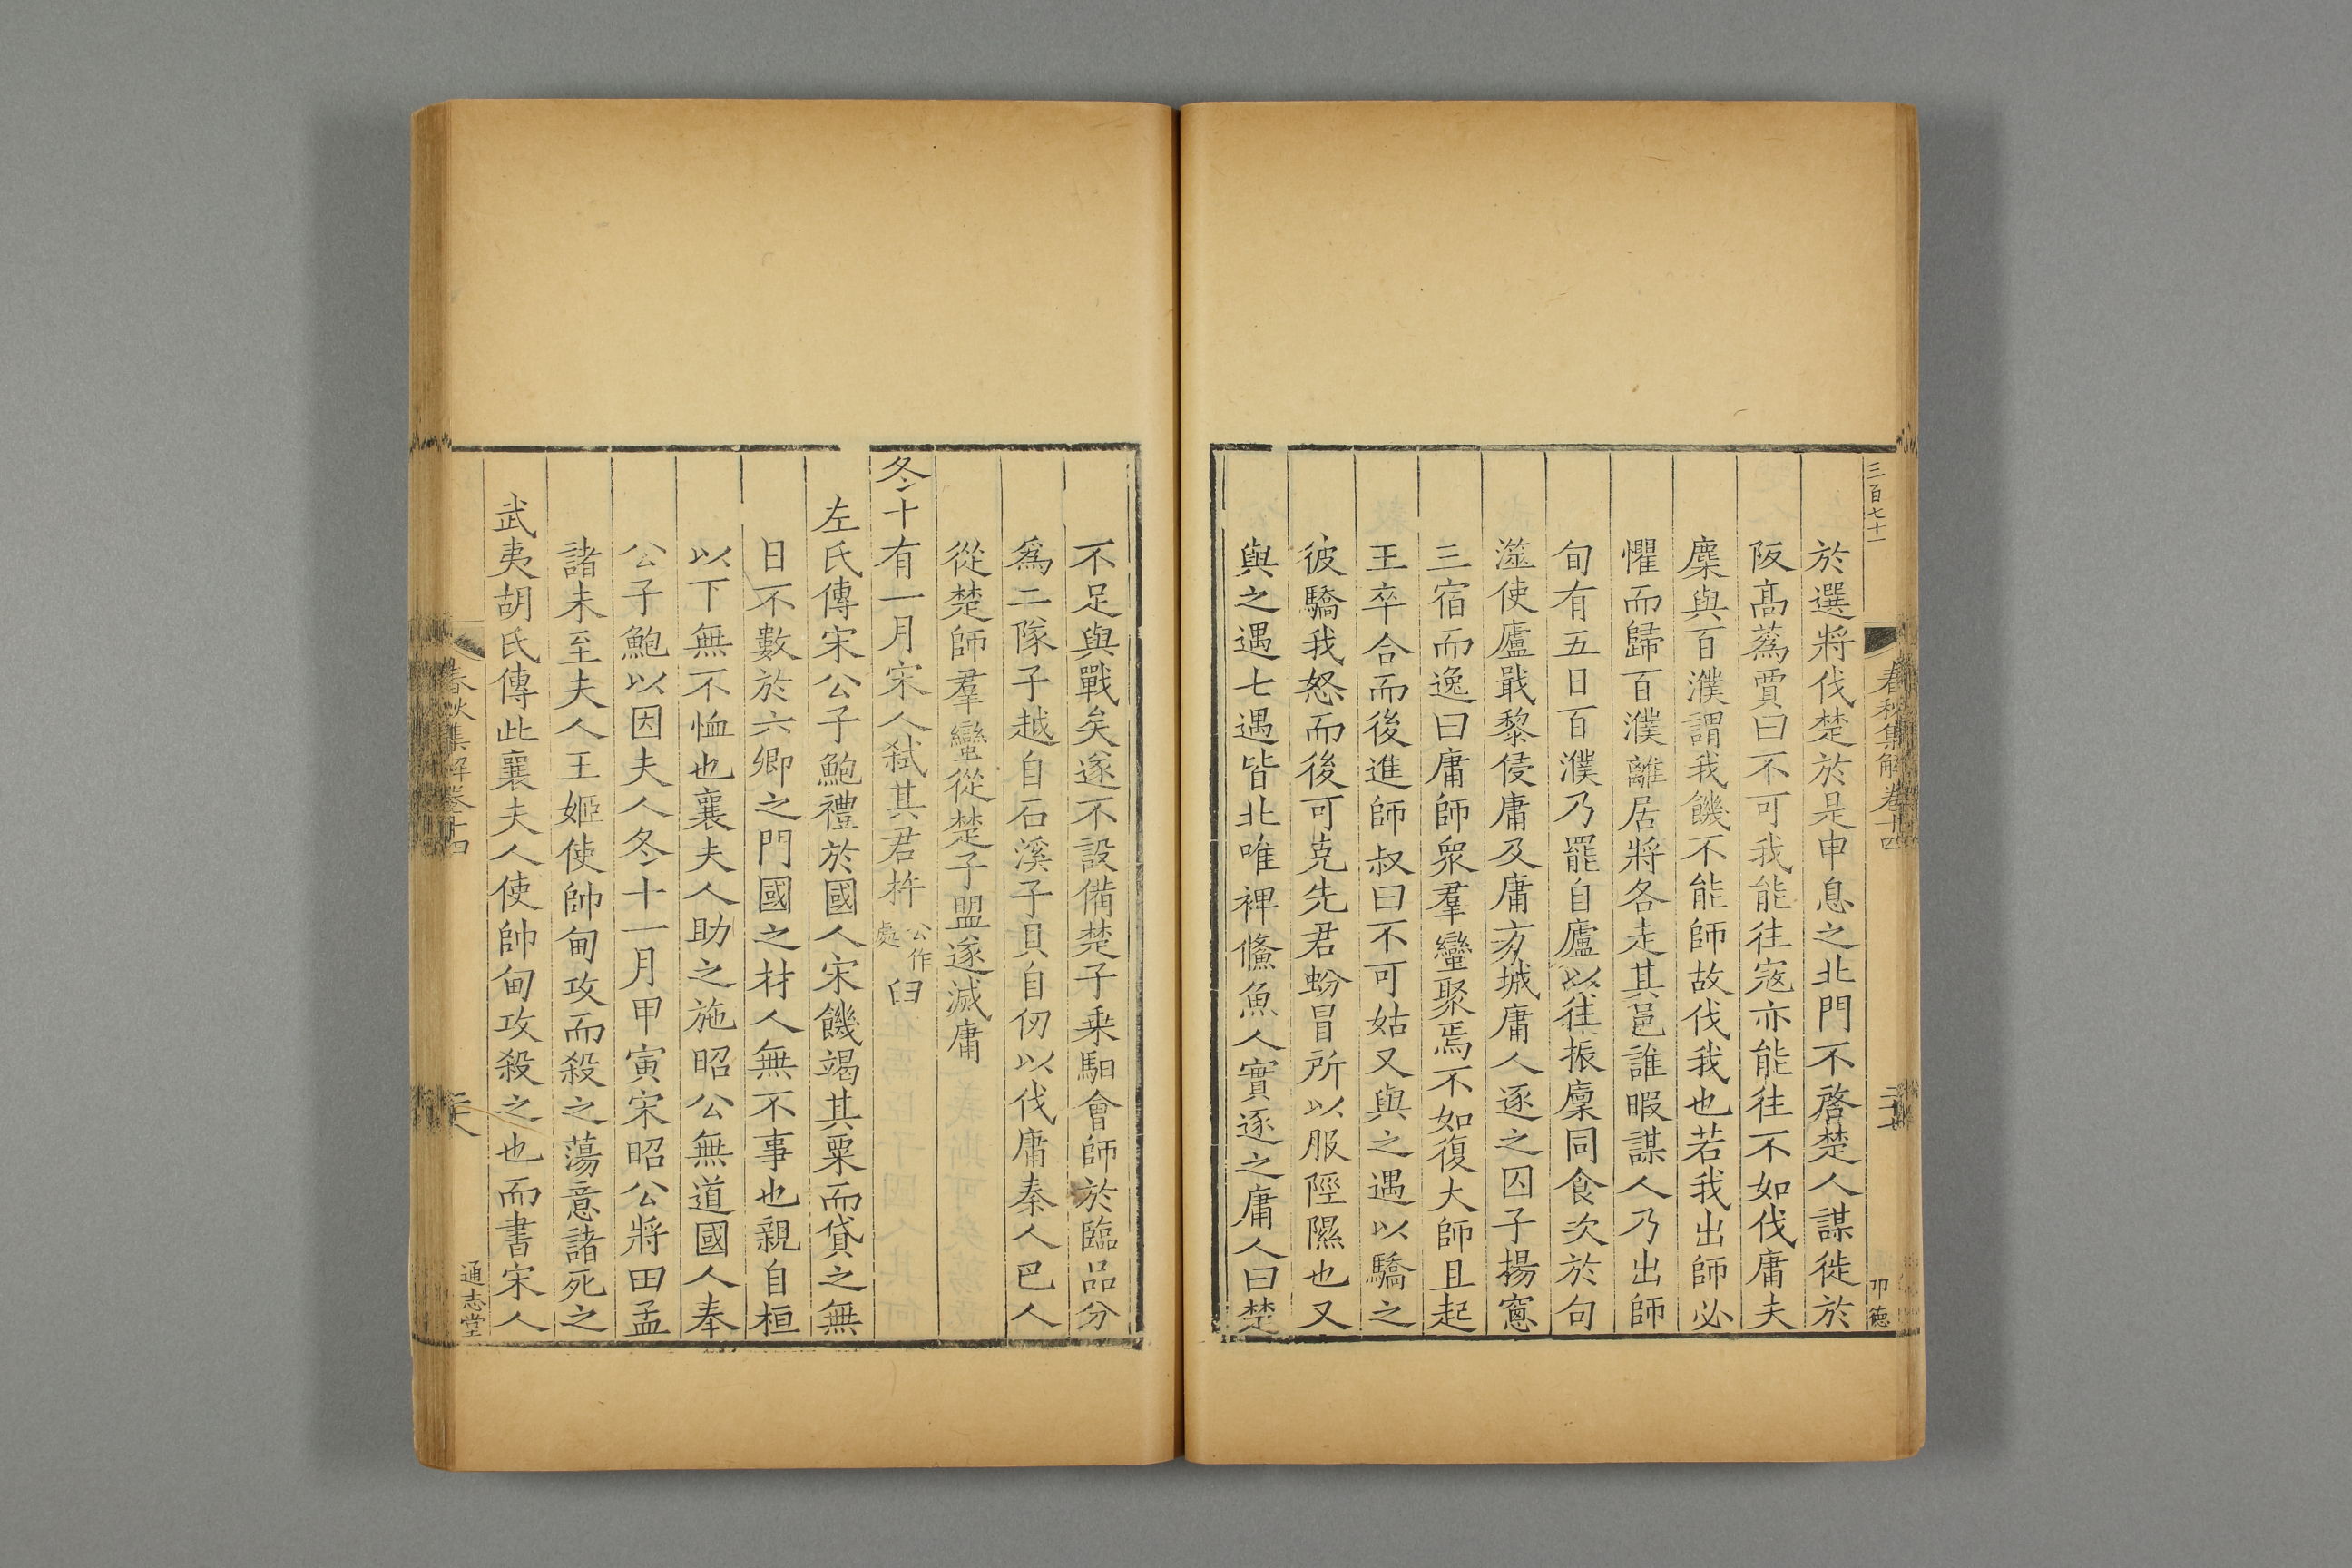 三百七十一
春秋集解卷十四
二十七
卭德
於選將伐楚於是申息之北門不啓楚人謀徙於
阪高蒍賈曰不可我能往寇亦能往不如伐庸夫
麋與百濮謂我饑不能師故伐我也若我出師必
懼而歸百濮離居將各走其邑誰暇謀人乃出師
旬有五日百濮乃罷自廬以往振廩同食次於句
澨使廬戢黎侵庸及庸方城庸人逐之囚子揚窻
三宿而逸曰庸師衆羣蠻聚焉不如復大師且起
王卒合而後進師叔曰不可姑又與之遇以驕之
彼驕我怒而後可克先君蚡冒所以服陘隰也又
與之遇七遇皆北唯裨鯈魚人實逐之庸人曰楚
不足與戰矣遂不設備楚子乘馹會師於臨品分
爲二隊子越自石溪子貝自仞以伐庸秦人巴人
從楚師羣蠻從楚子盟遂滅庸
冬十有一月宋人弑其君杵公作處臼
左氏傳宋公子鮑禮於國人宋饑竭其粟而貸之無
日不數於六卿之門國之材人無不事也親自桓
以下無不恤也襄夫人助之施昭公無道國人奉
公子鮑以因夫人冬十一月甲寅宋昭公將田孟
諸未至夫人王姬使帥甸攻而殺之蕩意諸死之
武夷胡氏傳此襄夫人使帥甸攻殺之也而書宋人
春秋集解卷十四
通志堂